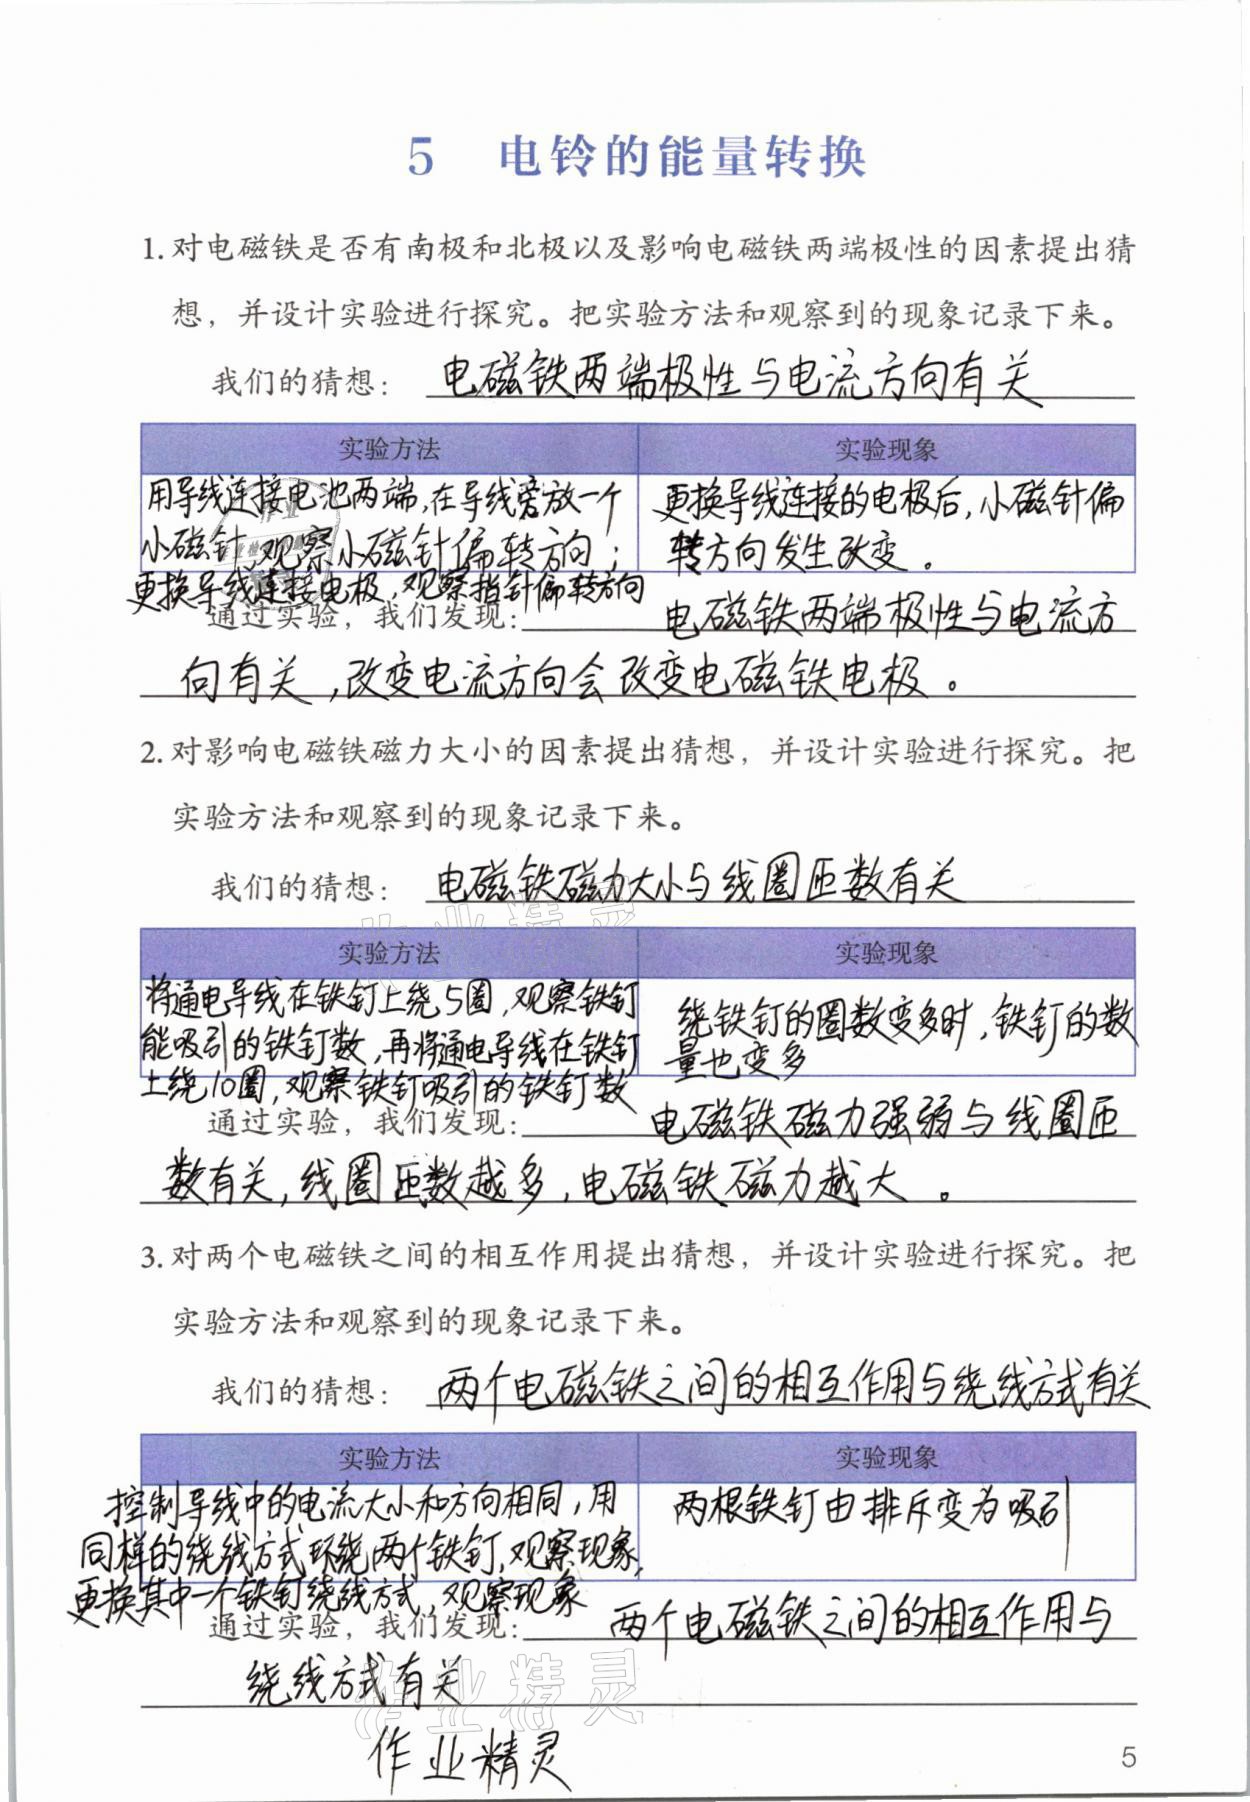 5 电铃的能量转换
1. 对电磁铁是否有南极和北极以及影响电磁铁两端极性的因素提出猜
想，并设计实验进行探究。把实验方法和观察到的现象记录下来。
我们的猜想： 电磁铁两端极性与电流方向有关
实验方法 实验现象
用导线连接电池两端,在导线旁放一个
小磁针,观察小磁针偏转方向;
更换导线连接电极,观察指针偏转方向
更换导线连接的电极后,小磁针偏
转方向发生改变。
通过实验，我们发现: 电磁铁两端极性与电流方
向有关,改变电流方向会改变电磁铁电极。
2. 对影响电磁铁磁力大小的因素提出猜想，并设计实验进行探究。把
实验方法和观察到的现象记录下来。
我们的猜想： 电磁铁磁力大小与线圈匝数有关
实验方法 实验现象
将通电导线在铁钉上绕5圈,观察铁钉
能吸引的铁钉数,再将通电导线在铁钉
上绕10圈,观察铁钉吸引的铁钉数
绕铁钉的圈数变多时,铁钉的数
量也变多
通过实验，我们发现: 电磁铁磁力强弱与线圈匝
数有关,线圈匝数越多,电磁铁磁力越大。
3. 对两个电磁铁之间的相互作用提出猜想，并设计实验进行探究。把
实验方法和观察到的现象记录下来。
我们的猜想： 两个电磁铁之间的相互作用与绕线方式有关
实验方法 实验现象
控制导线中的电流大小和方向相同,用
同样的绕线方式环绕两个铁钉,观察现象,
更换其中一个铁钉绕线方式,观察现象
两根铁钉由排斥变为吸引
通过实验，我们发现: 两个电磁铁之间的相互作用与
绕线方式有关
作业精灵
作业精灵
作业精灵
5